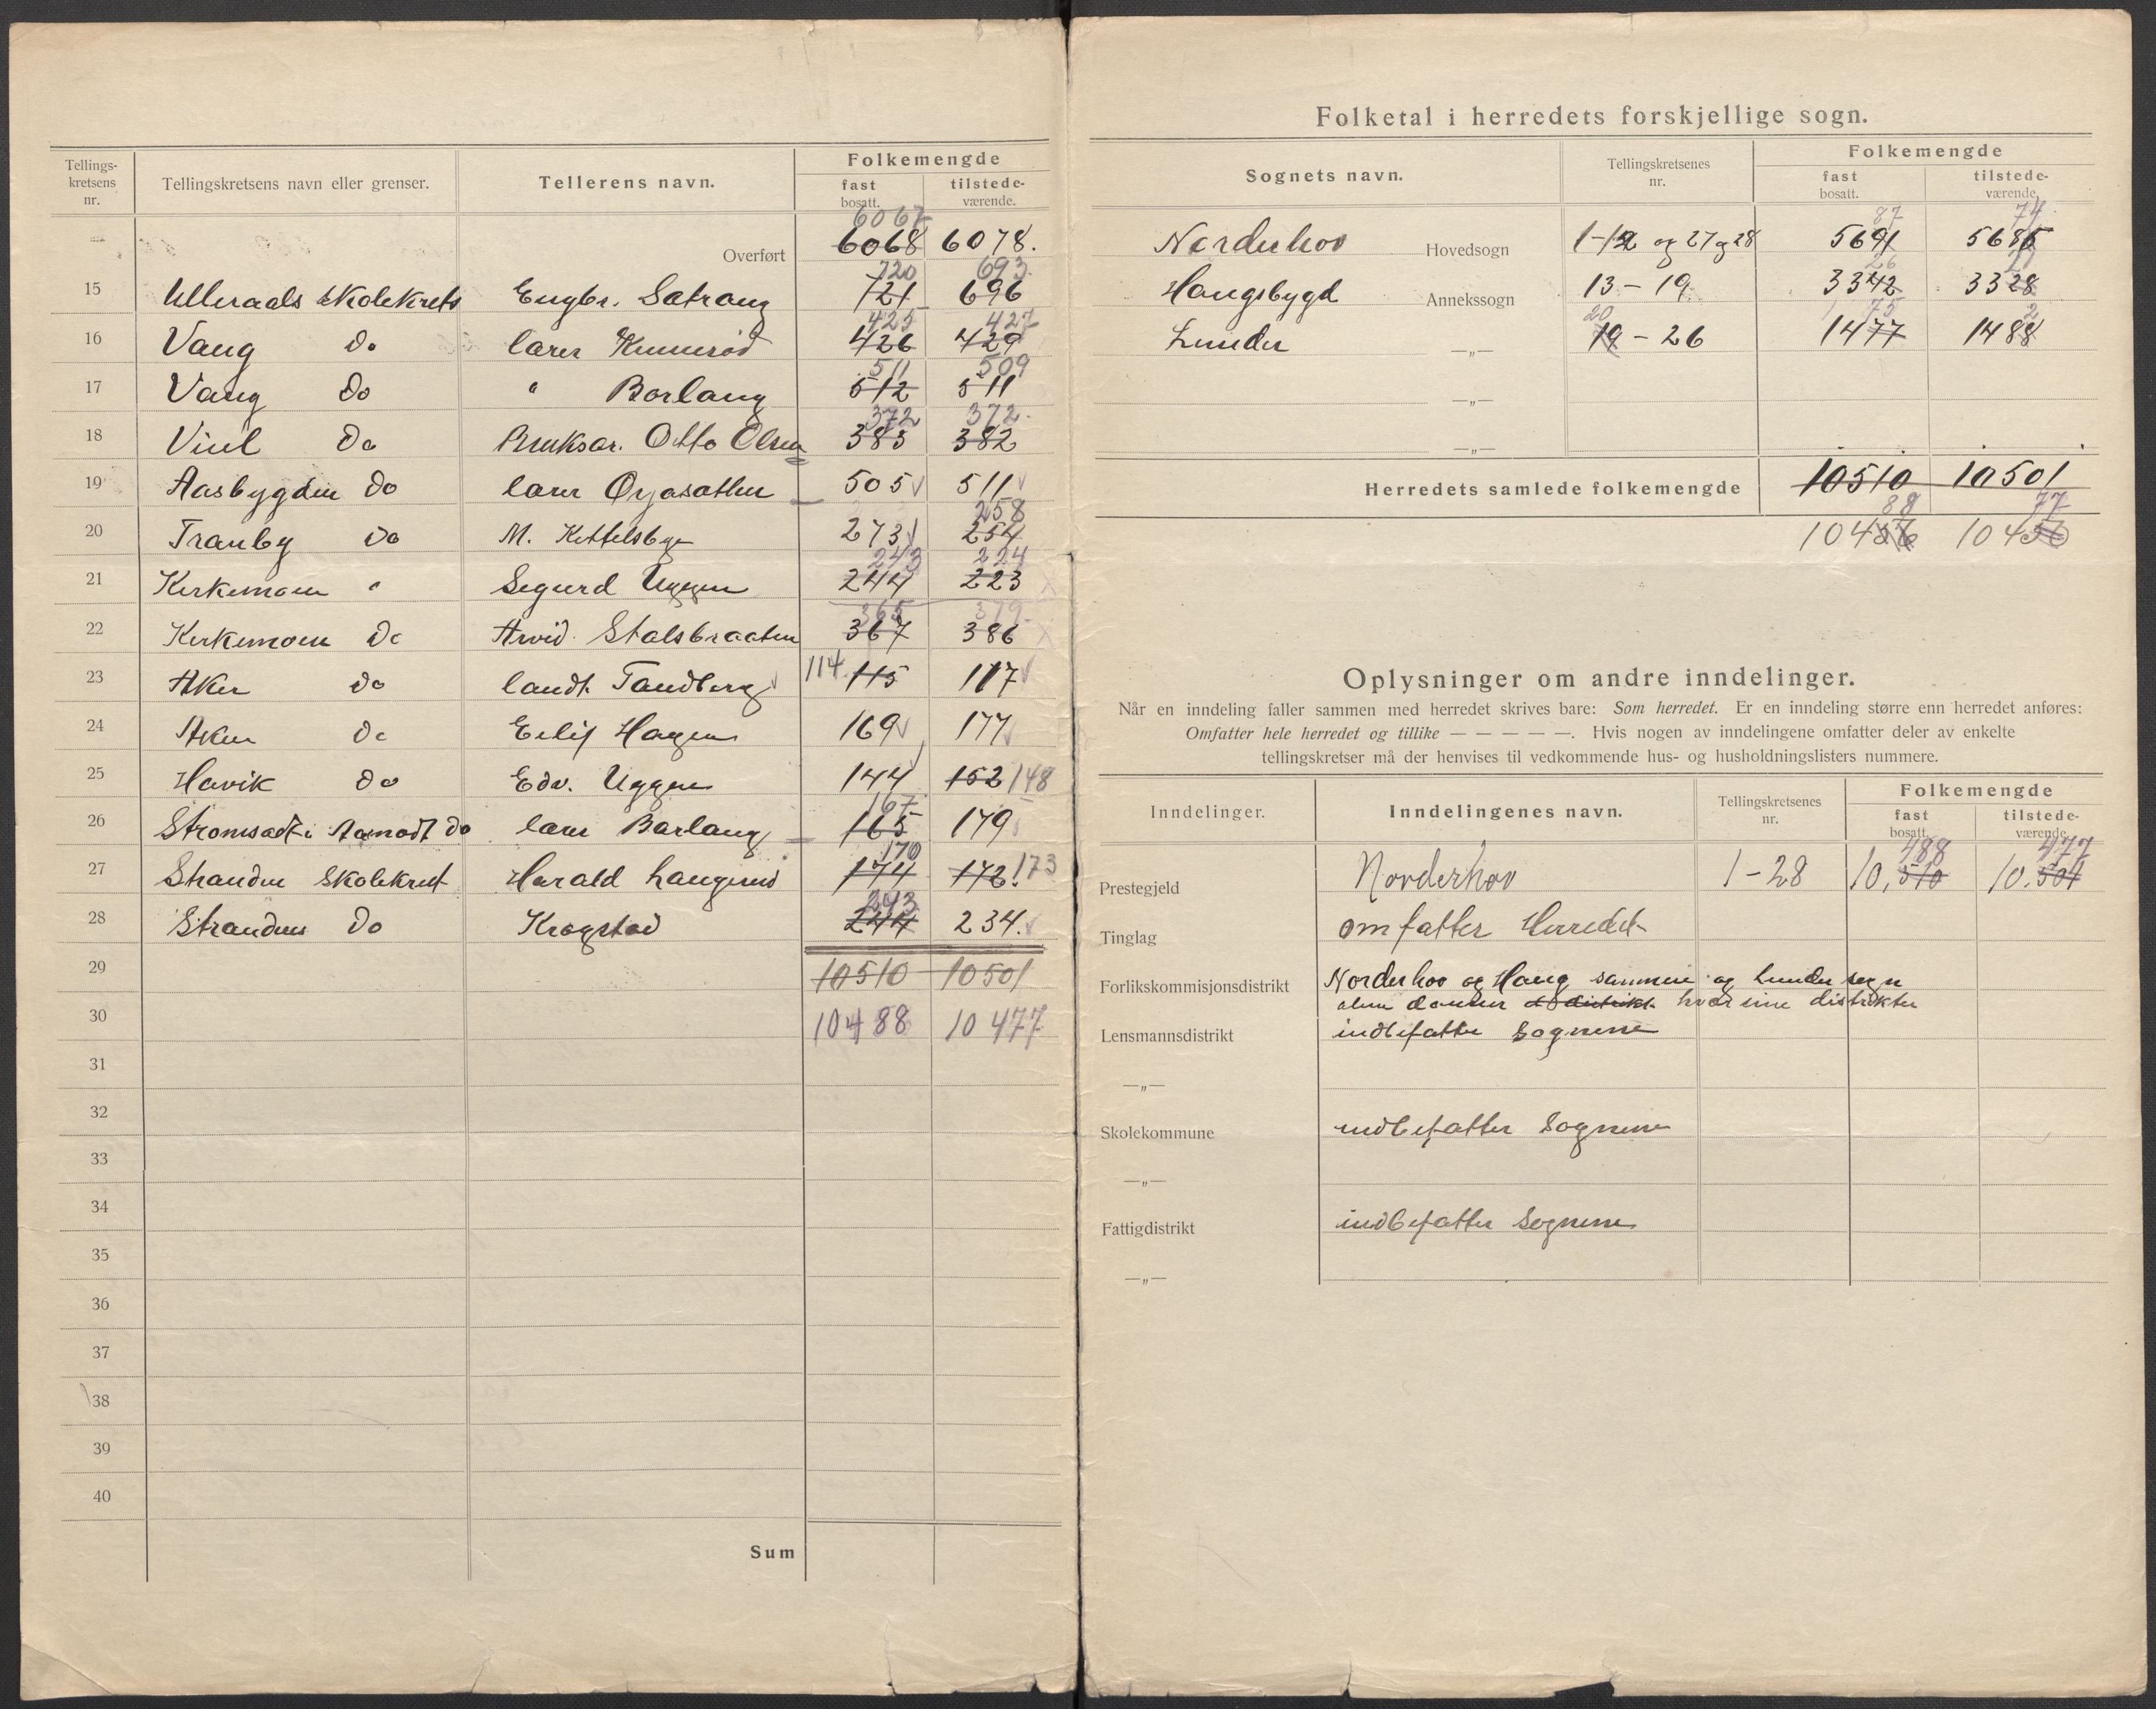 Tellings-
kretsens
nr.
Tellingskretsens navn eller grenser.
Tellerens navn.
Folkemengde
fast
bosatt.
tilstede-
værende.
6067
Overført 6068 6078.
720 693
15 Ulleraals Skolekrets Engbr. 721 696
425 427
16 Vang do lærer 426 429
511 509
17 Vang do " Borlaug 512 511
372 372
18 Viul do Bruksar. Otto Olsen 383 382
19 Aasbygden do lærer 505 511
258
20 Tranby do M. 273 254
243 224
21 Kirkemoen " Sigurd Uggen 244 223
365 379
22 Kirkemoen do Arvid Stalsbraaten 367 386
23 Aker do landh. Tandberg 114 115 117
24 Aker do Eilif Hagen 169 177
25 Havik do Edv. Uggen 144 152 148
167
26 Stromsodt i Aamodt do lærer Barlaug 165 179
170
27 Stranden Skolekret Harald Laugerud 174 172 173
243
28 Stranden do Krogstad 244 234.
29 10510 10501
30 10488 10477
31
32
33
34
35
36
37
38
39
40
Sum
Folketal i herredets forskjellige sogn.
Sognets navn.
Tellingskretsenes
nr.
Folkemengde
fast
bosatt.
tilstede-
værende.
87 74
Norderhov Hovedsogn 1-12 og 27 og 28 5691 5685
26 21
Haugsbygd Annekssogn 13-19 3342 3328
20 75 2
Lunder —„— 19-26 1477 1488
—„—
—„—
Herredets samlede folkemengde 10510 10501
88 77
10456 10450
Oplysninger om andre inndelinger.
Når en inndeling faller sammen med herredet skrives bare: Som herredet. Er en inndeling større enn herredet anføres:
Omfatter hele herredet og tillike — — — — —. Hvis nogen av inndelingene omfatter deler av enkelte
tellingskretser må der henvises til vedkommende hus- og husholdningslisters nummere.
Inndelinger.
Inndelingenes navn.
Tellingskretsenes
nr.
Folkemengde
fast
bosatt.
tilstede-
værende.
488 477
Prestegjeld Norderhov 1-28 10,510 10.501
Tinglag omfatter Herredet
Forlikskommisjonsdistrikt Norderhov og Haug sammen og Lunder sogn
alene danner et distrikt hver sine distrikter
Lensmannsdistrikt indbefatter Sognene
—„—
Skolekommune indbefatter Sognene
—„—
Fattigdistrikt indbefatter Sognene
—„—